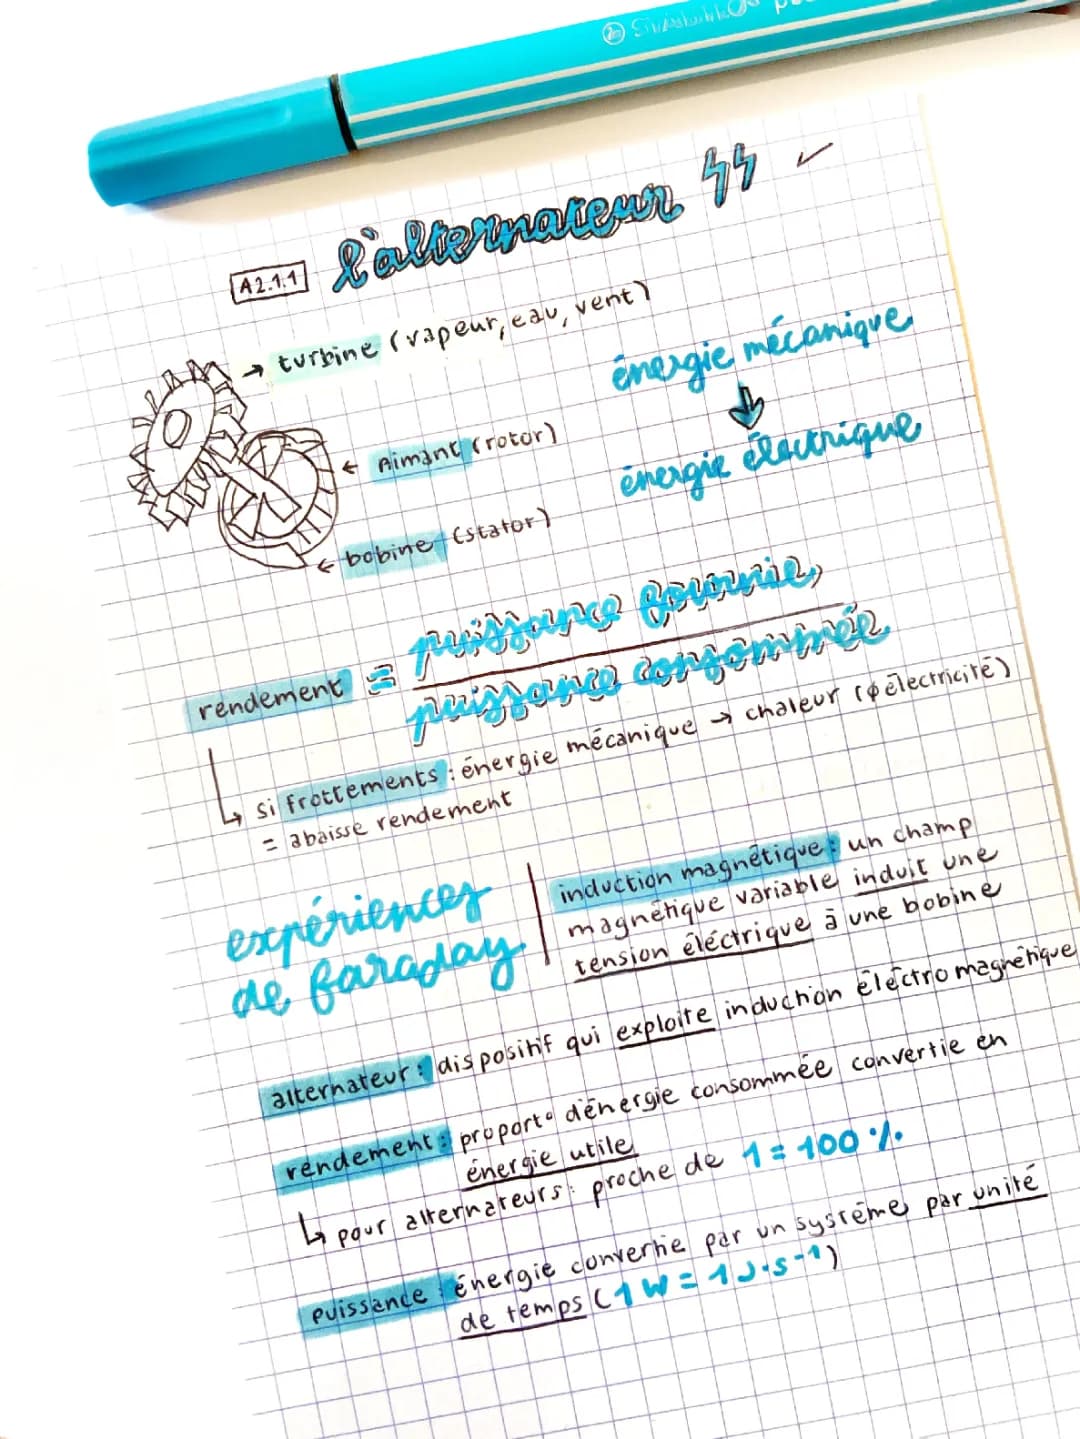 l'alternateur
A2.1.1
→ turbine (vapeur, eau, vent)
énergie mécanique
↓
énergie électrique
← Aimant (rotor)
← bobine (stator)
rendement = puissance fournie
puissance consommée
↳ si frottements : énergie mécanique → chaleur (∅ électricité)
= abaisse rendement
expériences
de faraday
induction magnétique : un champ
magnétique variable induit une
tension éléctrique à une bobine
alternateur : dispositif qui exploite induction éléctromagnétique
rendement : proport° d'énergie consommée convertie en
énergie utile
↳ pour alternateurs : proche de 1 = 100 %
puissance : énergie convertie par un système par unité
de temps (1 W = 1 J·s-1)